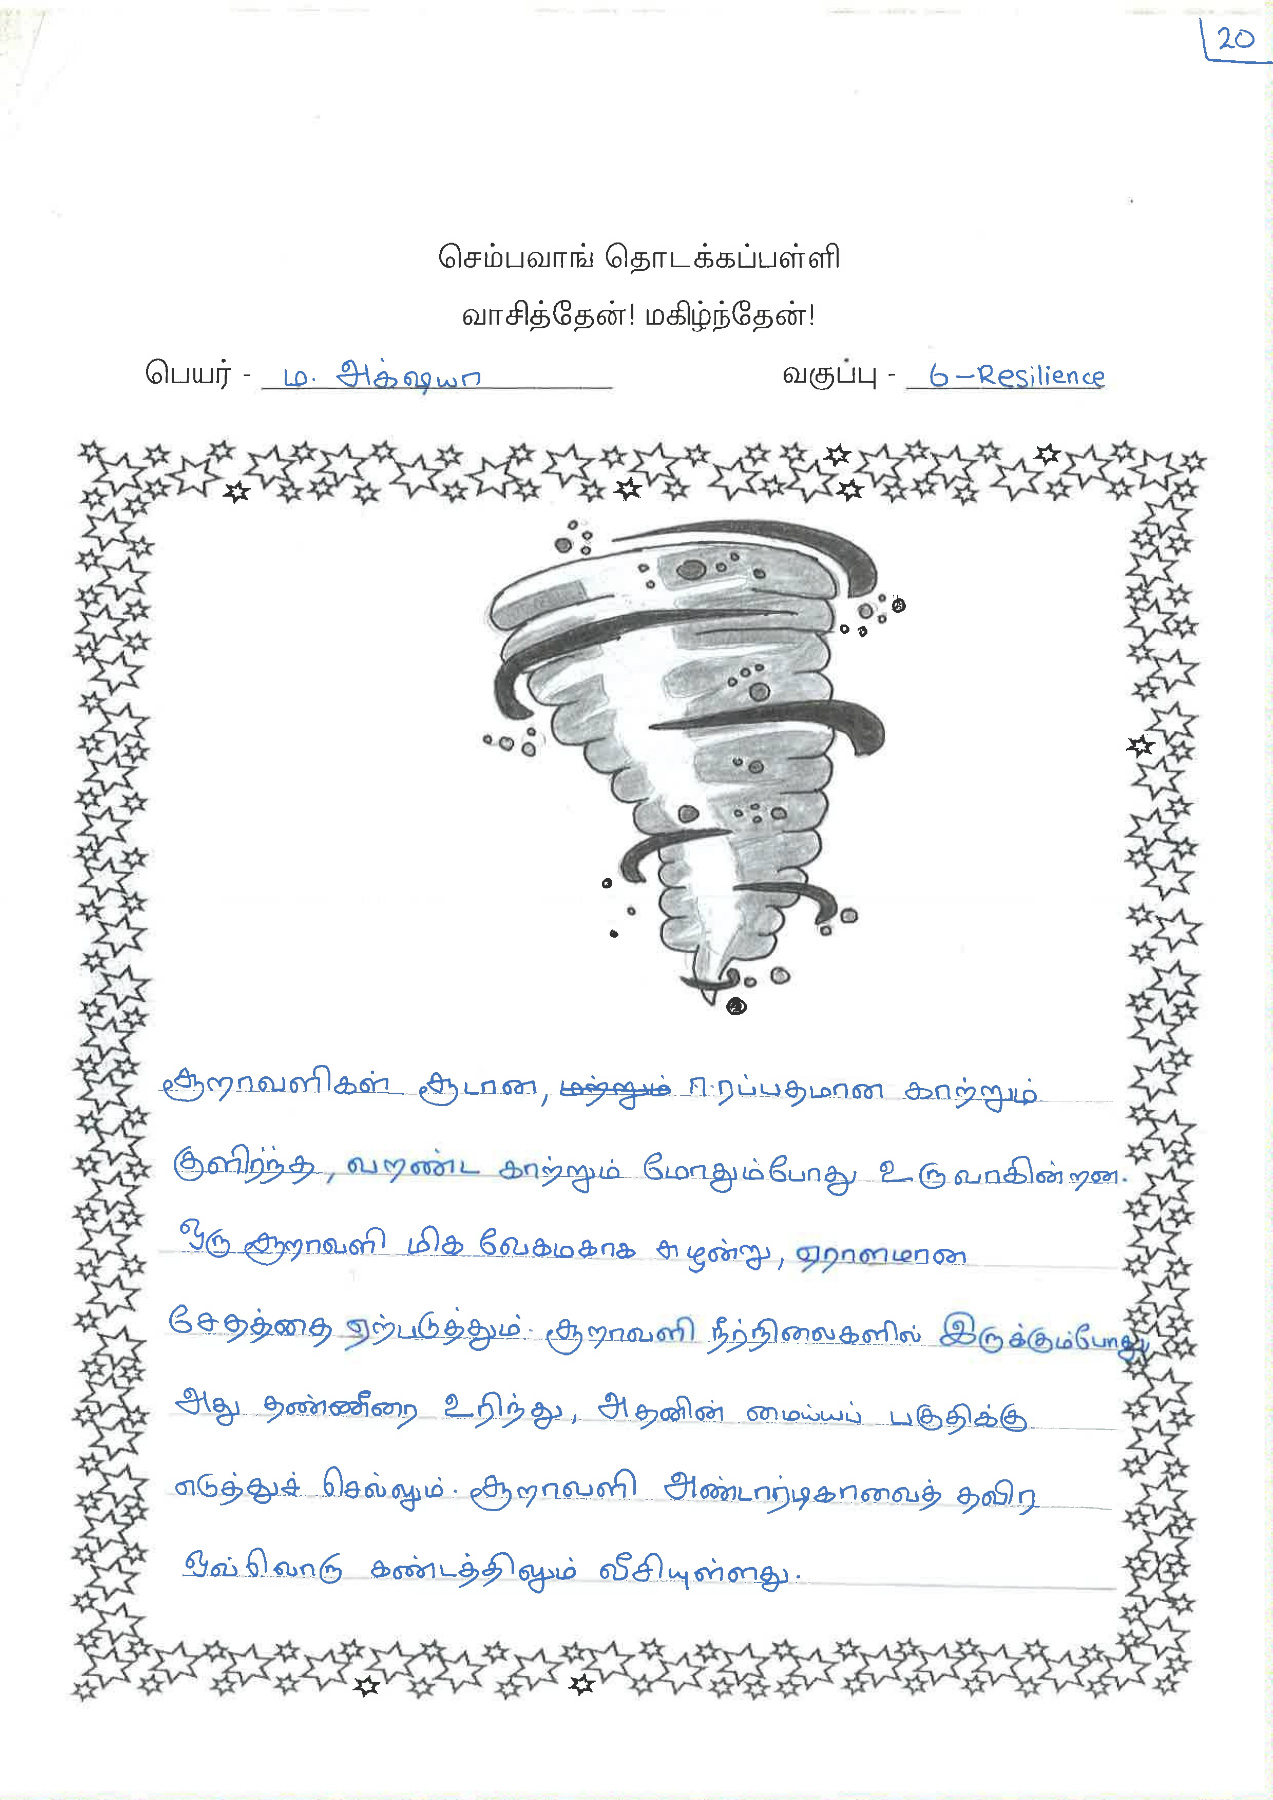 20
செம்பவாங் தொடக்கப்பள்ளி
வாசித்தேன்! மகிழ்ந்தேன்!
பெயர் - ம. அக்ஷயா வகுப்பு - 6-Resilience
சூறாவளிகள் சூடான, மற்றும் ஈரப்பதமான காற்றும்
குளிர்ந்த, வறண்ட காற்றும் மோதும்போது உருவாகின்றன.
ஒரு சூறாவளி மிக வேகமகாக சுழன்று, ஏராளமான
சேதத்தை ஏற்படுத்தும். சூறாவளி நீர்நிலைகளில் இருக்கும்போது
அது தண்ணீரை உரிந்து, அதனின் மைய்யப் பகுதிக்கு
எடுத்துச் செல்லும். சூறாவளி அண்டார்டிகாவைத் தவிர
ஒவ்வொரு கண்டத்திலும் வீசியுள்ளது.